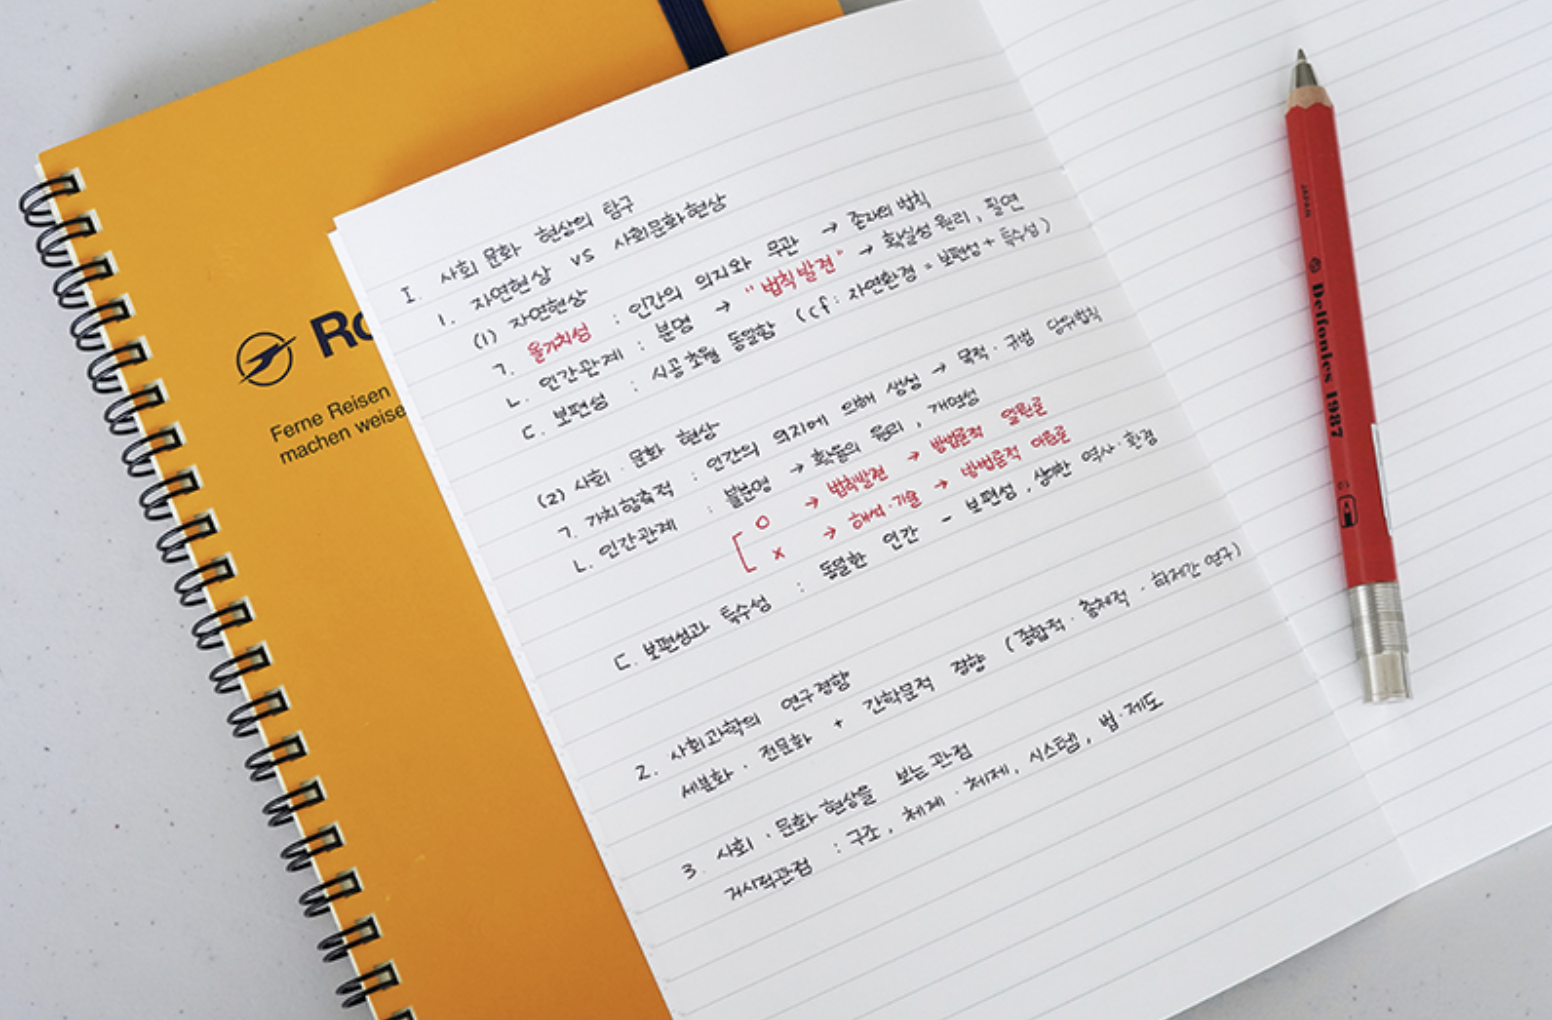 Ro
Ferne Reisen
machen weise
I. 사회 문화 현상의 탐구
1. 자연현상 vs 사회문화현상
(1) 자연현상
ㄱ. 몰가치성 : 인간의 의지와 무관 → 존재의 법칙
ㄴ. 인간관계 : 분명 → "법칙발견" → 확실성 원리, 필연
ㄷ. 보편성 : 시공초월 동일함 (cf: 자연환경 = 보편성 + 특수성)
(2) 사회·문화 현상
ㄱ. 가치함축적 : 인간의 의지에 의해 생성 → 목적·규범 당위법칙
ㄴ. 인간관계 : 불분명 → 확률의 원리, 개연성
[ O → 법칙발견 → 방법론적 일원론
X → 해석·기술 → 방법론적 이원론
ㄷ. 보편성과 특수성 : 동일한 인간 - 보편성, 상이한 역사·환경
2. 사회과학의 연구경향
세분화·전문화 + 간학문적 경향 (종합적·총체적·학제간 연구)
3. 사회·문화현상을 보는 관점
거시적관점 : 구조, 체계·체제, 시스템, 법·제도
JAPAN
Delfonics 1987